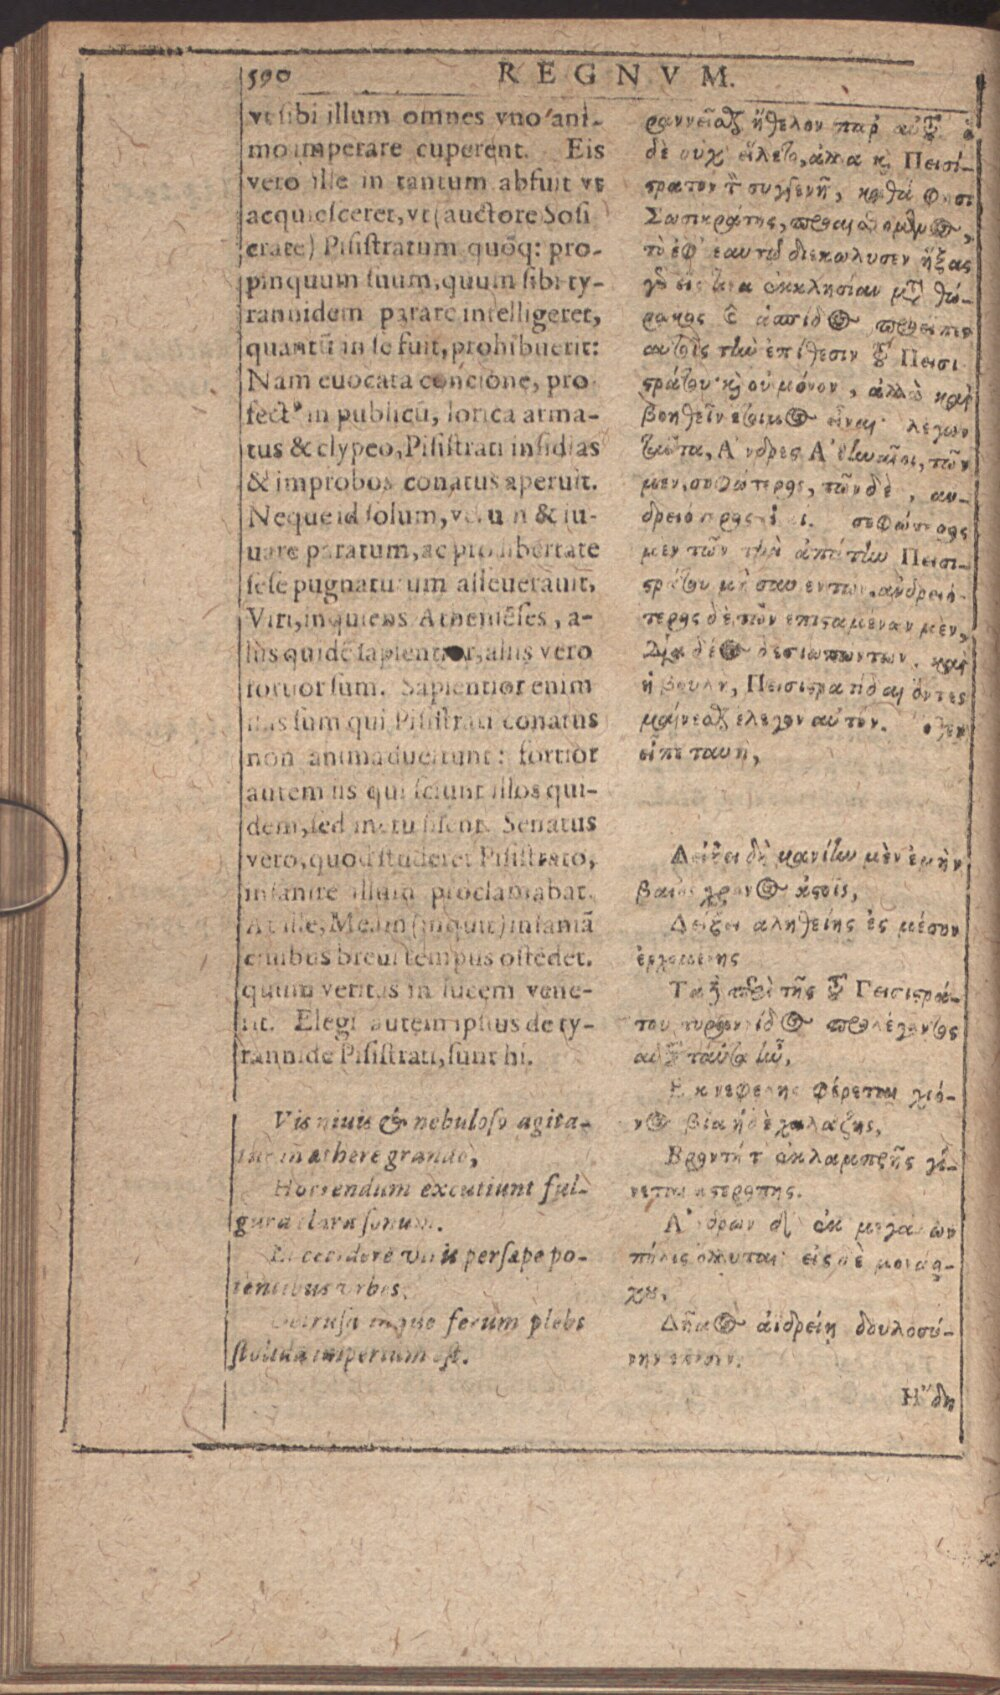 590 REGNVM.
vt sibi illum omnes vno ani-
mo imperare cuperent. Eis
vero ille in tantum abfuit vt
acquiesceret, vt (auctore Sosi
crate) Pisistratum quoq̃: pro-
pinquum suum, quum sibi ty-
rannidem parare intelligeret,
quantũ in se fuit, prohibuerit:
Nam euocata concione, pro
fectꝰ in publicũ, lorica arma-
tus & clypeo, Pisistrati insidias
& improbos conatus aperuit.
Neque id solum, verum & iu-
uare paratum, ac pro libertate
sese pugnaturum asseuerauit,
Viri, inquiens Atheniẽses, a-
liis quidẽ sapientior, aliis vero
fortior sum. Sapientior enim
iis sum qui Pisistrati conatus
non animaduertunt: fortior
autem iis qui sciunt illos qui-
dem, sed metu silent. Senatus
vero, quod studeret Pisistrato,
insanire illum proclamabat.
At ille, Meam (inquit) insaniã
ciuibus breui tempus ostẽdet.
quum veritas in lucem vene-
rit. Elegi autem ipsius de ty-
rannide Pisistrati, sunt hi.
Vis niuis & nebuloso agita-
tur in æthere grando,
Horrendum excutiunt ful-
gura clara sonum.
viris persæpe po-
tentibus vrbes,
inque ferum plebs
stolida imperium est.
ραννεῖσθαι ἤθελον παρ' αὐτοῦ ὁ
δὲ οὐχ εἵλετο, ἀλλὰ καὶ Πεισί-
στρατον τὸν συγγενῆ, καθά φησι
Σωσικράτης,
τὸ ἐφ' ἑαυτῷ διεκώλυσεν ᾄξας
γὰρ εἰς τὴν ἐκκλησίαν μετὰ θώ-
ρακος καὶ ἀσπίδος προεῖπεν
αὐτοῖς τὴν ἐπίθεσιν τοῦ Πεισι
στράτου· καὶ οὐ μόνον, ἀλλὰ καὶ
βοηθεῖν ἕτοιμος εἶναι λέγων
ταῦτα, Ἄνδρες Ἀθηναῖοι, τῶν
μὲν σοφώτερος, τῶν δὲ, αν-
δρειότερός εἰμι. σοφώτερος
μὲν τῶν τὴν ἀπάτην Πεισι-
στράτου μὴ συνιέντων, ἀνδρειό-
τερος δὲ τῶν ἐπισταμένων μὲν,
διὰ δέος δὲ σιωπώντων. καὶ
ἡ βουλὴ, Πεισιστρατίδαι ὄντες
μαίνεσθαι ἔλεγον αὐτόν. ὅθεν
εἶπε ταυτὶ,
Δείξει δὴ μανίην μὲν ἐμὴν
βαιὸς χρόνος ἀστοῖς,
Δείξει ἀληθείης ἐς μέσον
ἐρχομένης
Τὰ δὲ περὶ τῆς τοῦ Πεισιστρά-
του τυραννίδος προλέγοντος
αὐτοῦ ταῦτα ἦν,
Ἐκ νεφέλης φέρεται χιό-
νος βία ἠδὲ χαλάζης,
Βροντὴ τ' ἐκ λαμπρῆς γί-
νεται ἀστεροπῆς.
Ἀνδρῶν δ' ἐκ μεγάλων
πόλις ὄλλυται· εἰς δὲ μονάρ-
χου,
Δῆμος ἀιδρείῃ δουλοσύ-
νην ἔπεσεν.
Ἤδη